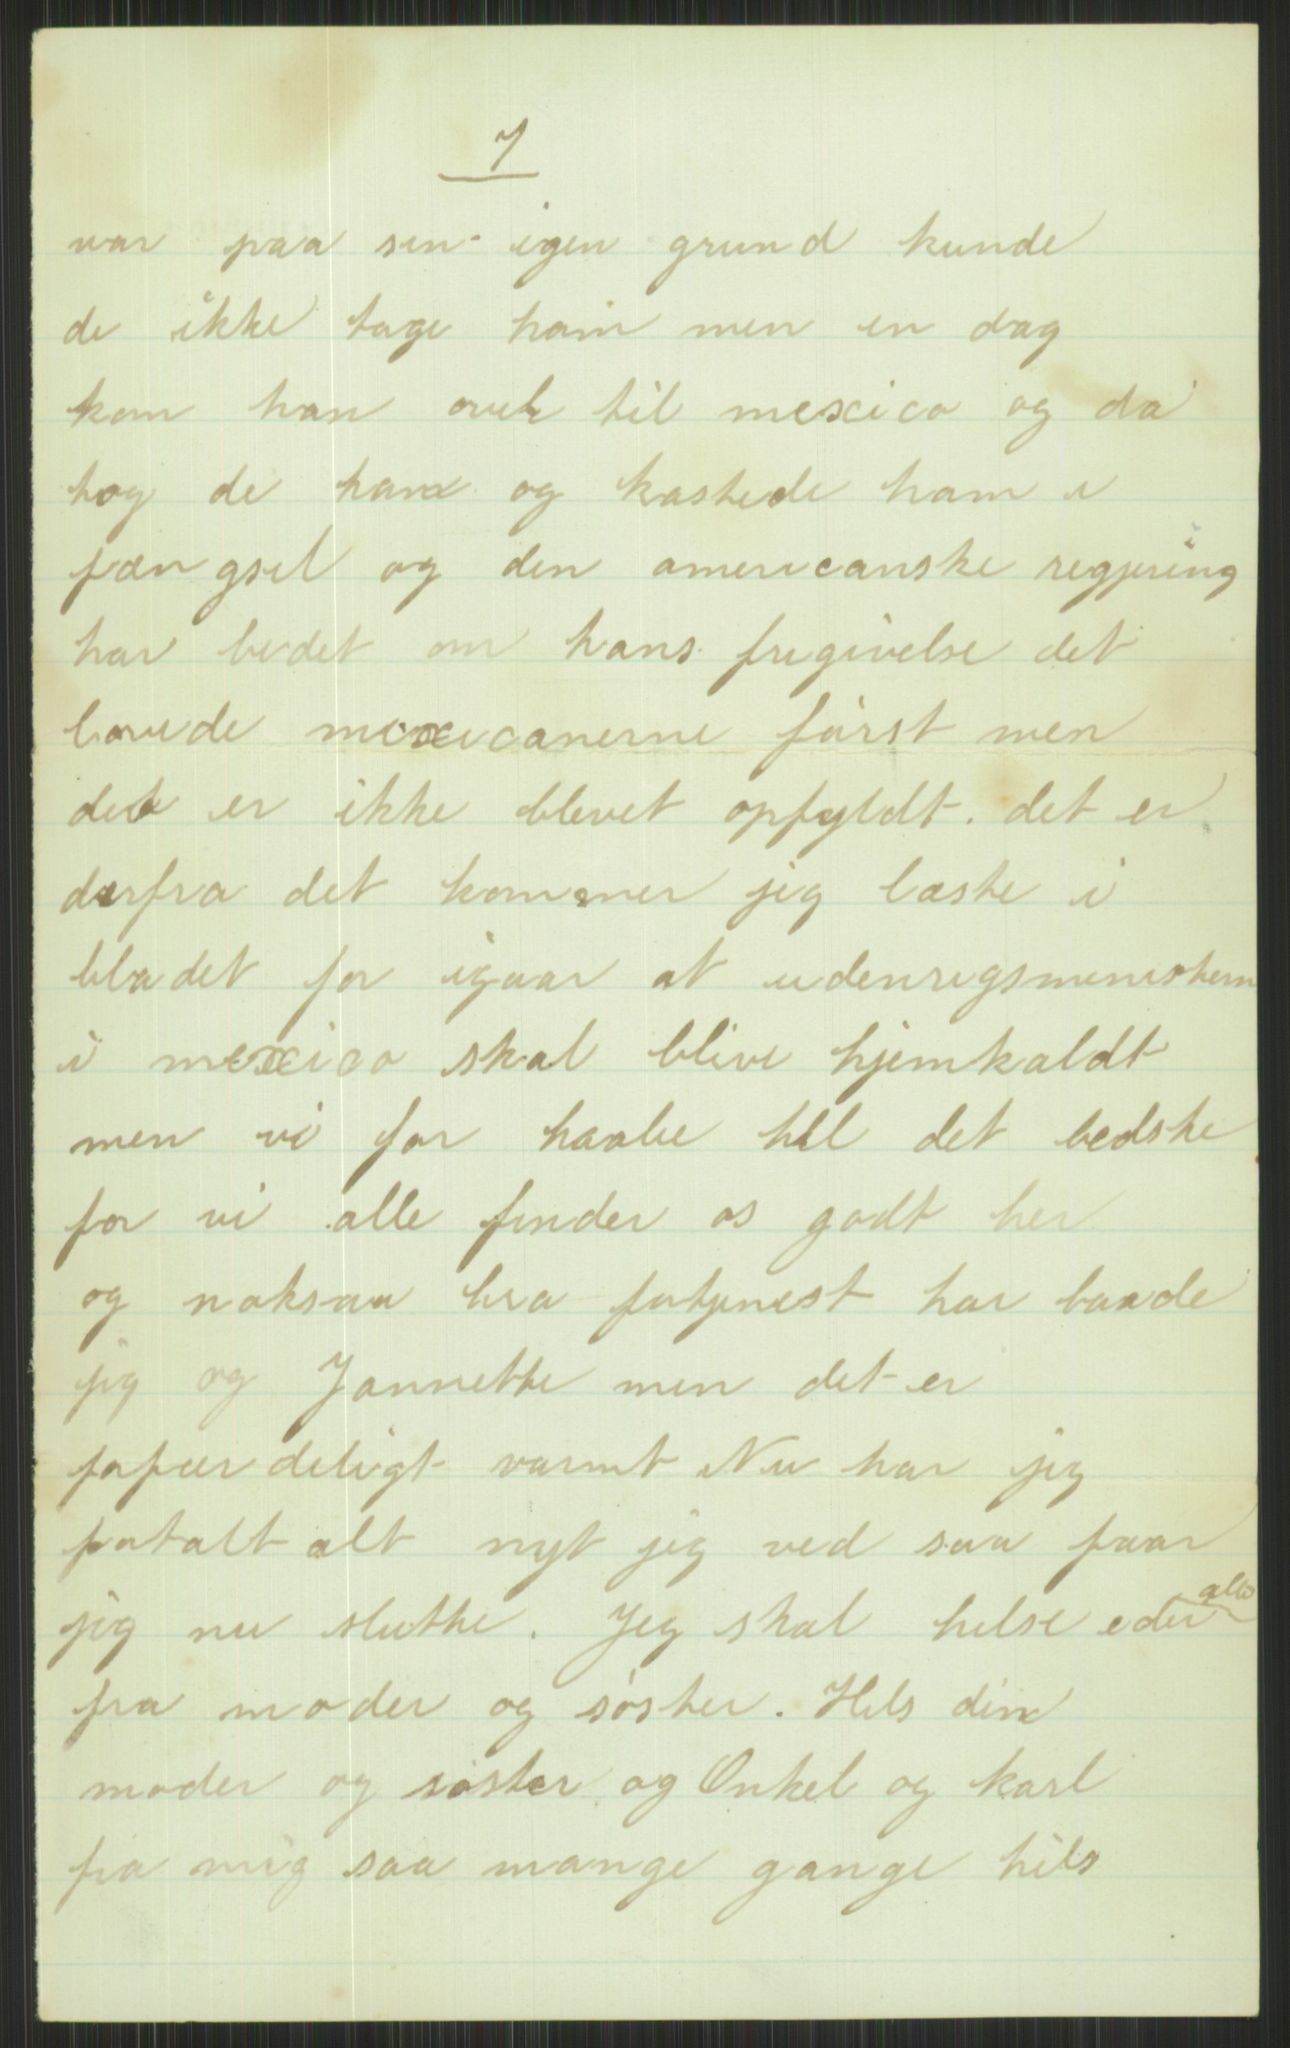 7
var paa sin igen grund kunde
de ikke tage ham men en dag
kom han over til mexico og da
tog de ham og kastede ham i
fængsel og den americanske regjering
har bedet om hans frigivelse det
lovede mexicanerne først men
det er ikke blevet opfyldt. det er
derfra det kommer jeg læste i
bladet for igaar at udenrigsministern
i mexico skal blive hjemkaldt
men vi for haabe til det bedste
for vi alle finder os godt her
og noksaa bra fortjenest har baade
jeg og Jannette men det er
forfærdeligt varmt Nu har jeg
fortalt alt nyt jeg ved saa faar
jeg nu slutte. Jeg skal helse eder alle
fra moder og søster. Hils din
moder og søster og Onkel og karl
fra mig saa mange gange hils